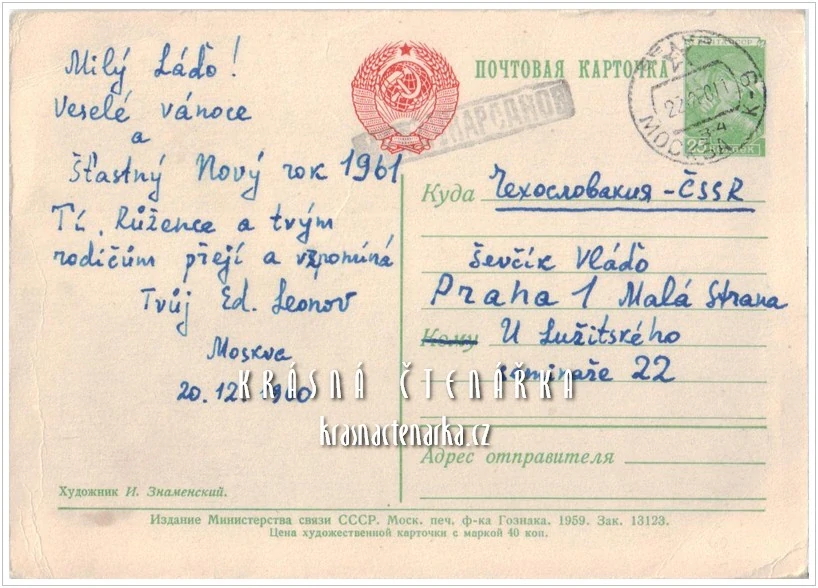 Milý Láďo!
Veselé vánoce
a
Šťastný Nový rok 1961
Tí, Růžence a tvým
rodičům přejí a vzpomíná
Tvůj Ed. Leonov
Moskva
20.12.1960
Художник И. Знаменский.
ПОЧТОВАЯ КАРТОЧКА
МОСКВА К-9
25
Куда Чехословакия - ČSSR
Ševčík Vláďo
Praha 1 Malá Strana
Кому U Lužitského
semináře 22
Адрес отправителя
KRÁSNÁ ČTENÁŘKA
krasnactenarka.cz
Издание Министерства связи СССР. Моск. печ. ф-ка Гознака. 1959. Зак. 13123.
Цена художественной карточки с маркой 40 коп.